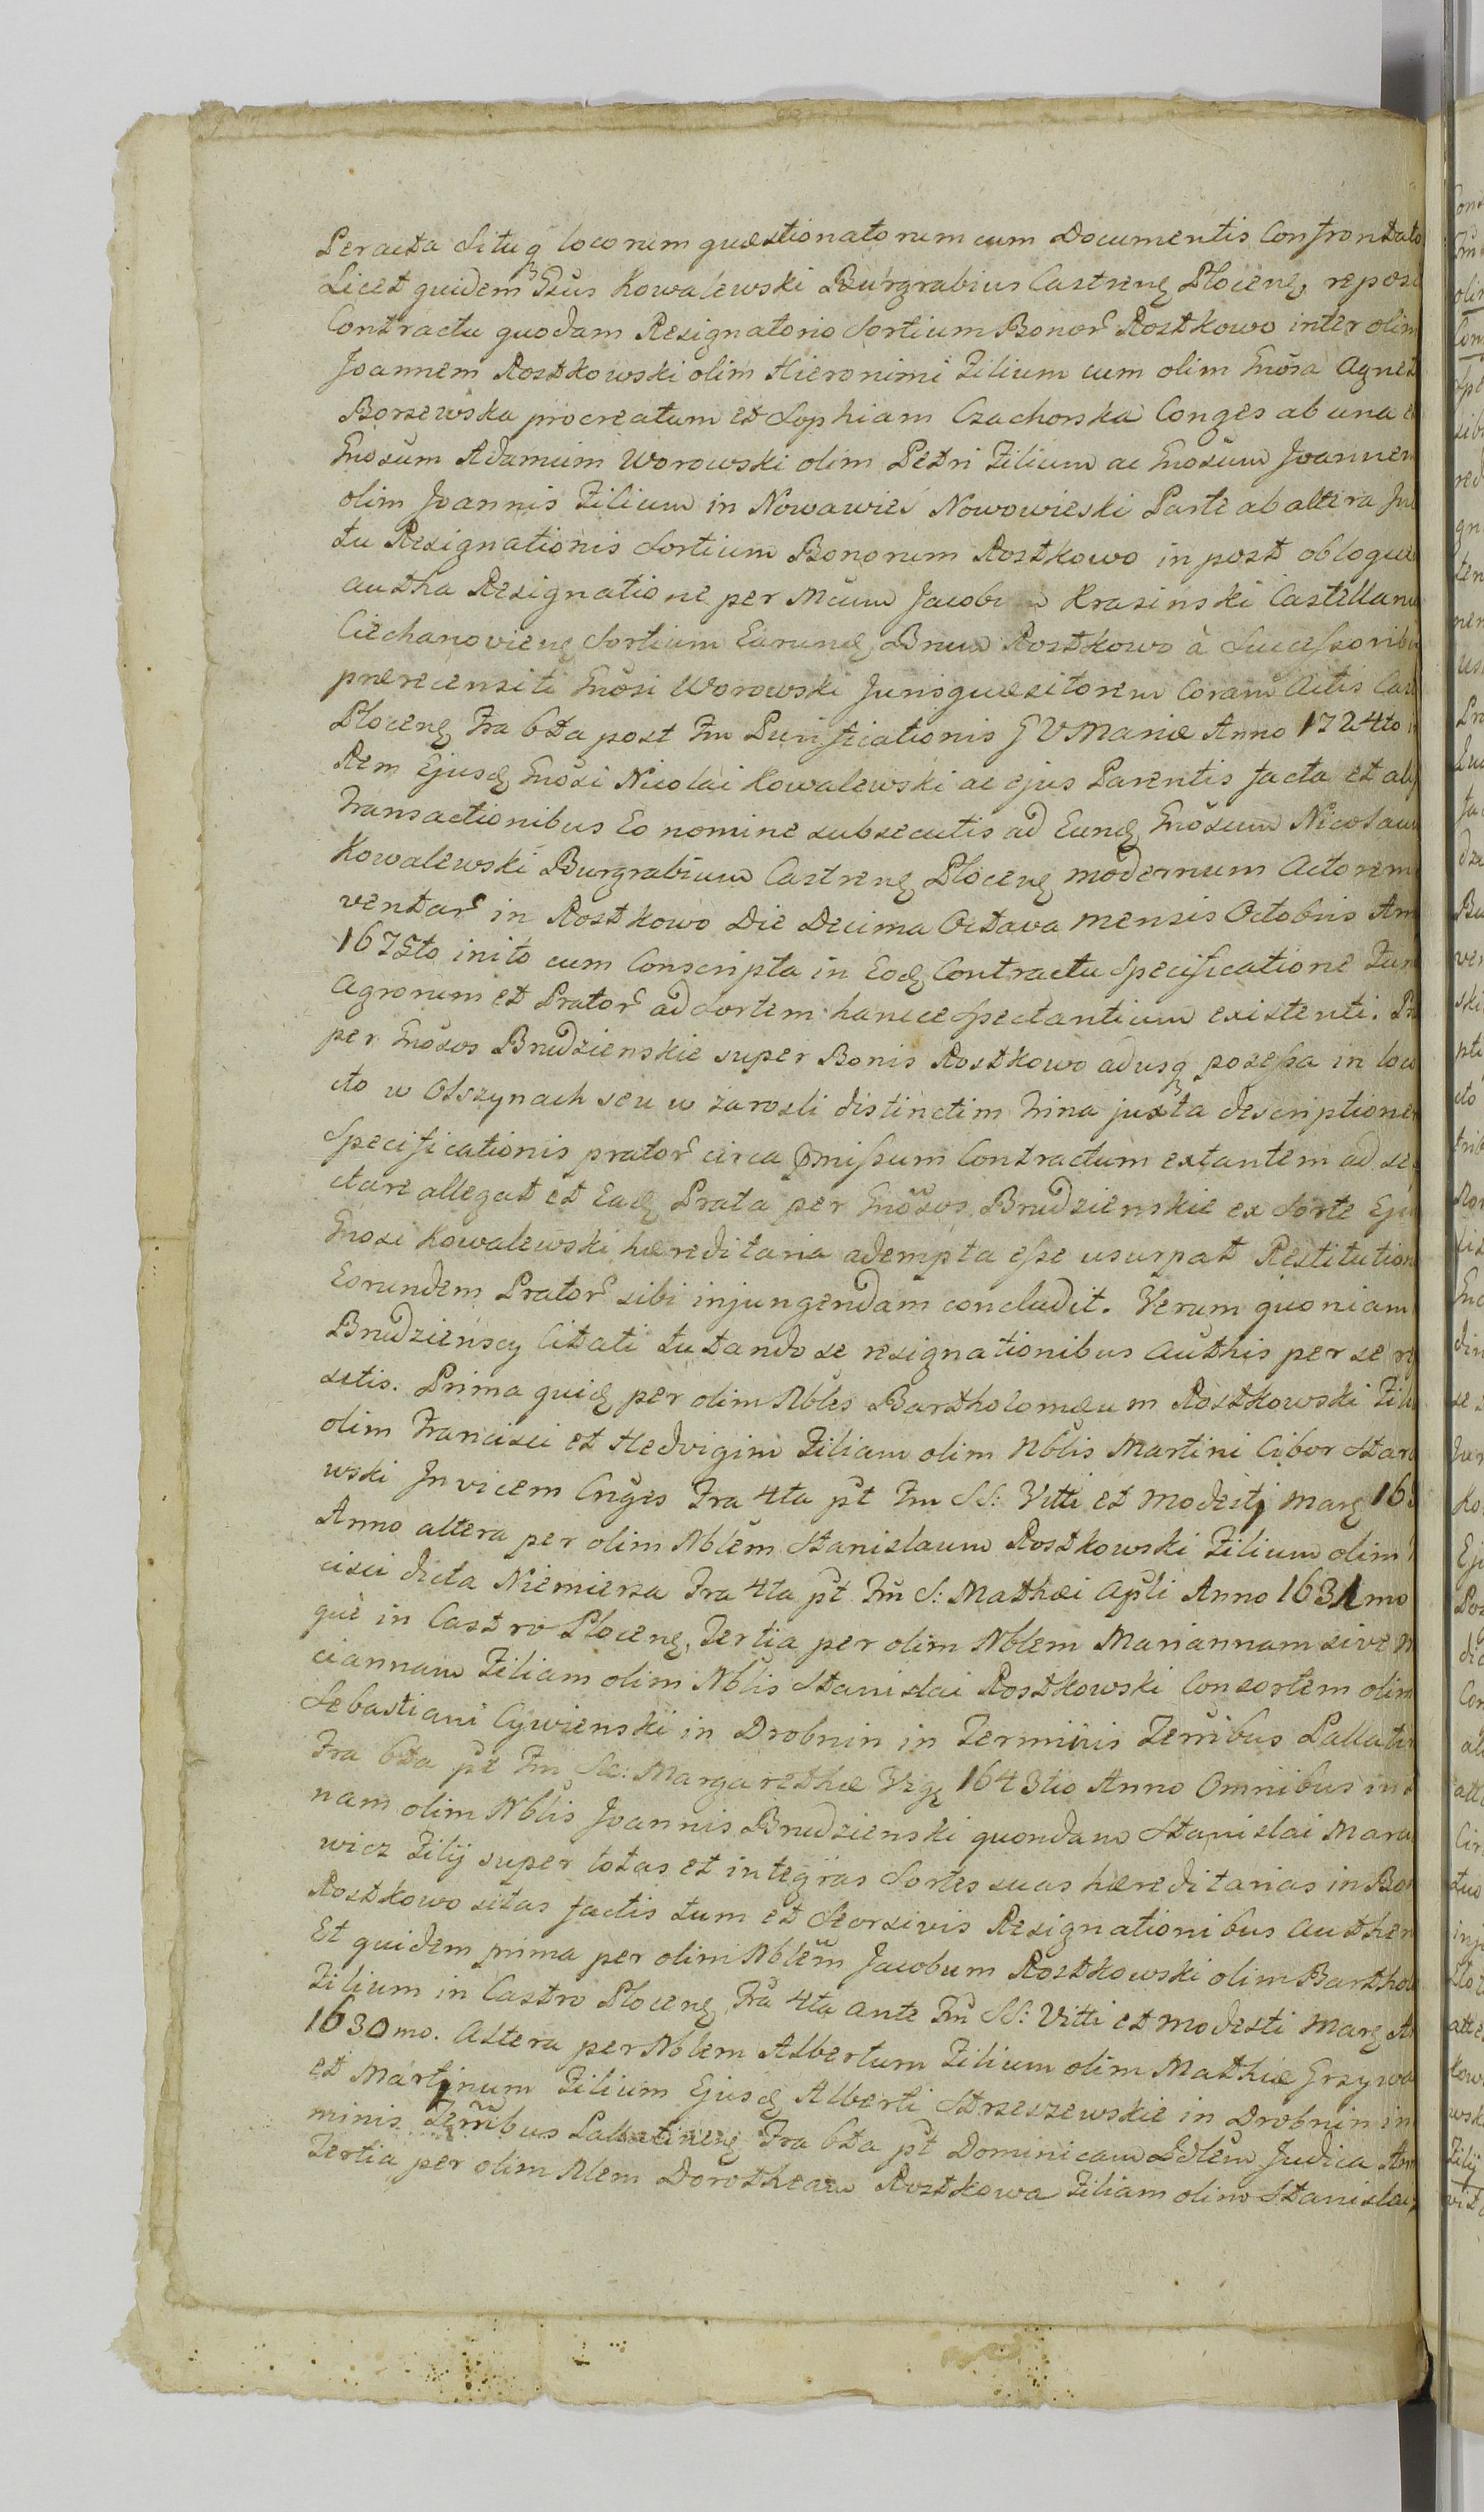 Peracta Situq̃ locorum quæstionatorum cum Documentis Confrontato
Licet quidem Gs̃us Kowalewski Burgrabius Castrenẽ Plocenẽ, repos
Contractu quodam Resignatorio Sortium Bonor̃ Rostkowo inter olim
Joannem Rostkowski olim Hieronimi Filium cum olim Gnõsa Agnet
Borzewska procreatum et Sophiam Czachorska Conges ab una e
Gnosum Adamum Worowski olim Petri Filium ac Gnosum Joannem
olim Joannis Filium in Nowawieś Nowowieski Parte ab altera
tu Resignationis Sortium Bonorum Rostkowo in post obloqua
autha Resignatione per Mcum Jacobum Krasinski Castellanu
Ciechanovienẽ Sortium Earundẽ Bnum Rostkowo à Successorib
prærecensiti Gnõsi Worowski Jurisquæsitorem Coram Actis Cas
Plocenẽ Fra 6ta post Fm Purificationis G V Mariæ Anno 1724to
Rem Ejusdẽ Gnõsi Nicolai Kowalewski ac ejus Parentis facta et alij
Transactionibus Eo nomine subsecutis ad Eundẽ Gnõsum Nicolaum
Kowalewski Burgrabium Castrenẽ Plocenẽ modernum Actorem
ventar̃ in Rostkowo Die Decima Octava mensis Octobris An
1675to inito cum Conscripta in Eodẽ Contractu Specificatione
Agrorum et Prator̃ ad Sortem hancce Spectantium existenti. Pr
per Gnõsos Brudzienskie super Bonis Rostkowo adusq̃ posessa in loco
cto w Olszynach seu w zarosli distinctim trina juxta descriptione
Specificationis prator̃ circa pmissum Contractum extantem ad se
ctare allegat et Eadẽ Prata per Gnõsos Brudzienskie ex Sorte Eju
Gnosi Kowalewski hæreditaria adempta esse usurpat Restitution
Eorundem Prator̃ sibi injungendam concludit. Verum quoniam
Brudzieńscy Citati tutando se resignationibus Authis per se re
sitis. Prima quidẽ per olim Nbles Bartholomæum Rostkowski Fili
olim Francisci et Hedvigim Filiam olim Nblis Martini Cibor Staro
wski Invicem Cnges Fra 4ta pt Fm SS: Vitti et Modesti Marẽ 163
Anno altera per olim Nblem Stanislaum Rostkowski Filium olim
cisci dicta Niemierza Fra 4ta pt Fm S: Mathæi Apli Anno 1631mo
que in Castro Plocenẽ, Tertia per olim Nblem Mariannam sive M
ciannam Filiam olim Nblis Stanislai Rostkowski Consortem olim
Sebastiani Cywienski in Drobnin in Terminis Terribus Pallati
Fra 6ta pt Fm Sc: Margarethæ Virg 1643tio Anno Omnibus in
nam olim Nblis Joannis Brudzienski quondam Stanislai Mara
wicz Filij super totas et integras Sortes suas hæreditarias in Bon
Rostkowo sitas factis tum et Seorsivis Resignationibus authen
Et quidem prima per olim Nblem Jacobum Rostkowski olim Barthol
Filium in Castro Plocenẽ Fra 4ta ante Fm SS: Vitti et Modesti Marẽ An
1630mo. Altera per Nblem Albertum Filium olim Mathiæ Grzywa
et Martinum Filium Ejusdẽ Alberti Strzeszewskie in Drobnin in
minis Terribus Pallatinenẽ Fra 6ta pt Dominicam Jdlem Judica An
Tertia per olim Nlem Dorotheam Rostkowa Filiam olim Stanislai